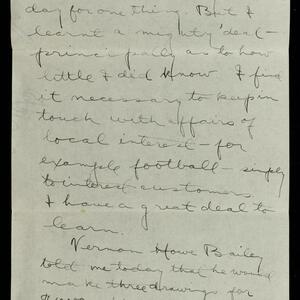 day for one thing. But I
learnt a mighty deal —
principally as to how
little I did know. I find
it necessary to keep in
touch with affairs of
local interest — for
example football — simply
to interest customers.
I have a great deal to
learn.
Vernon Howe Bailey
told me today that he would
make three drawings for